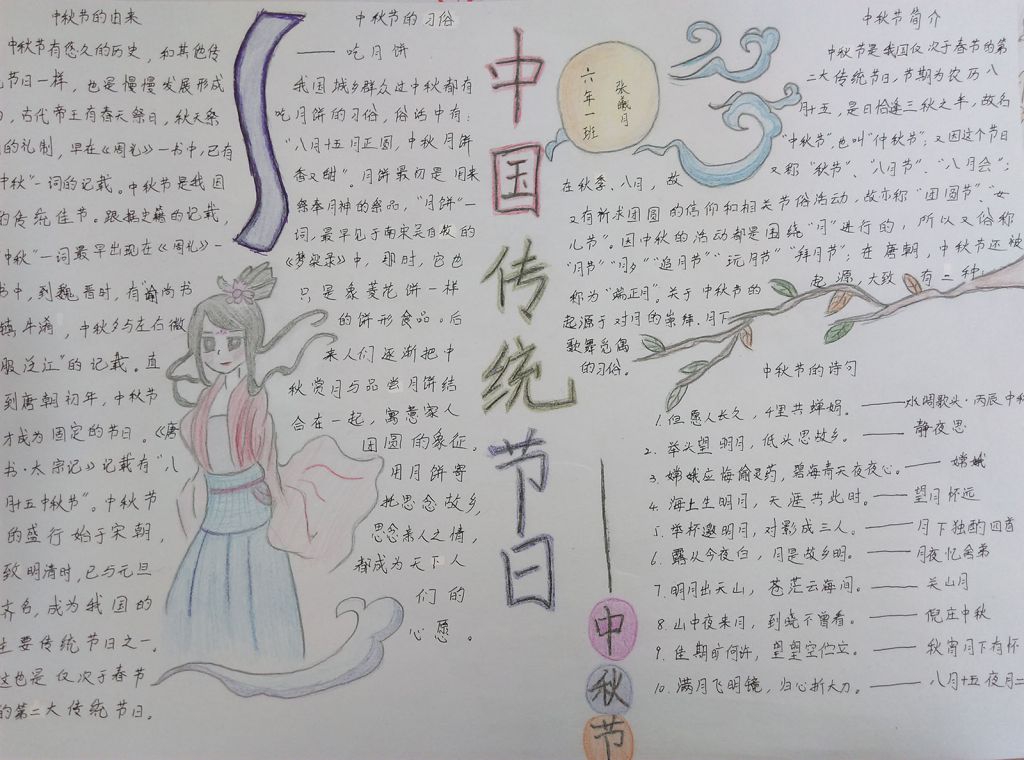 中秋节的由来
中秋节有悠久的历史，和其色传
节日一样，也是慢慢发展形成
，古代帝王有春天祭日，秋天祭
的礼制，早在《周礼》一书中，已有
中秋"一词的记载。中秋节是我国
的传统佳节。跟据史籍的记载，
中秋"一词最早出现在《周礼》一
书中，到魏晋时，有"谕尚书
镇牛淆，中秋夕与左右微
服泛江"的记载。直
到唐朝初年，中秋节
才成为固定的节日。《唐
书·太宗记》记载有"八
月十五中秋节"。中秋节
的盛行始于宋朝，
致明清时，已与元旦
齐名，成为我国的
主要传统节日之一。
这也是仅次于春节
的第二大传统节日。
中秋节的习俗
——吃月饼
我国城乡群众过中秋都有
吃月饼的习俗，俗话中有：
"八月十五月正圆，中秋月饼
香又甜"。月饼最初是用来
祭奉月神的祭品，"月饼"一
词，最早见于南宋吴自牧的
《梦梁录》中，那时，它也
只是象菱花饼一样
的饼形食品。后
来人们逐渐把中
秋赏月与品尝月饼结
合在一起，寓意家人
团圆的象征。
用月饼寄
托思念故乡，
思念亲人之情，
都成为天下人
们的
心愿。
中国传统节日
——中秋节
六年一班
张曦月
中秋节简介
中秋节是我国仅次于春节的第
二大传统节日，节期为农历八
月十五，是日恰逢三秋之半，故名
"中秋节"，也叫"仲秋节"；又因这个节日
在秋季、八月，故又称"秋节"、"八月节"、"八月会"；
又有祈求团圆的信仰和相关节俗活动，故亦称"团圆节"、"女
儿节"。因中秋的活动都是围绕"月"进行的，所以又俗称
"月节""月夕""追月节""玩月节""拜月节"；在唐朝，中秋节还被
称为"端正月"。关于中秋节的起源，大致有二种：
起源于对月的崇拜、月下
歌舞觅偶
的习俗。
中秋节的诗句
1.但愿人长久，千里共蝉娟。——水调歌头·丙辰中秋
2.举头望明月，低头思故乡。——静夜思
3.嫦娥应悔偷灵药，碧海青天夜夜心。——嫦娥
4.海上生明月，天涯共此时。——望月怀远
5.举杯邀明月，对影成三人。——月下独酌四首
6.露从今夜白，月是故乡明。——月夜忆舍弟
7.明月出天山，苍茫云海间。——关山月
8.山中夜来月，到晓不曾看。——倪庄中秋
9.佳期旷何许，望望空伫立。——秋宵月下有怀
10.满月飞明镜，归心折大刀。——八月十五夜月二